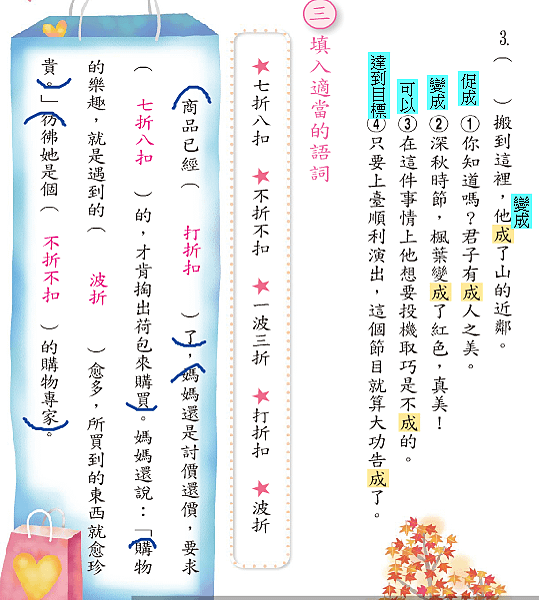 3.（　）搬到這裡，他成了山的近鄰。
變成
①你知道嗎？君子有成人之美。
促成
②深秋時節，楓葉變成了紅色，真美！
變成
③在這件事情上他想要投機取巧是不成的。
可以
④只要上臺順利演出，這個節目就算大功告成了。
達到目標
三 填入適當的語詞
★七折八扣 ★不折不扣 ★一波三折 ★打折扣 ★波折
商品已經（打折扣）了，媽媽還是討價還價，要求
（七折八扣）的，才肯掏出荷包來購買。媽媽還說：「購物
的樂趣，就是遇到的（波折）愈多，所買到的東西就愈珍
貴。」彷彿她是個（不折不扣）的購物專家。